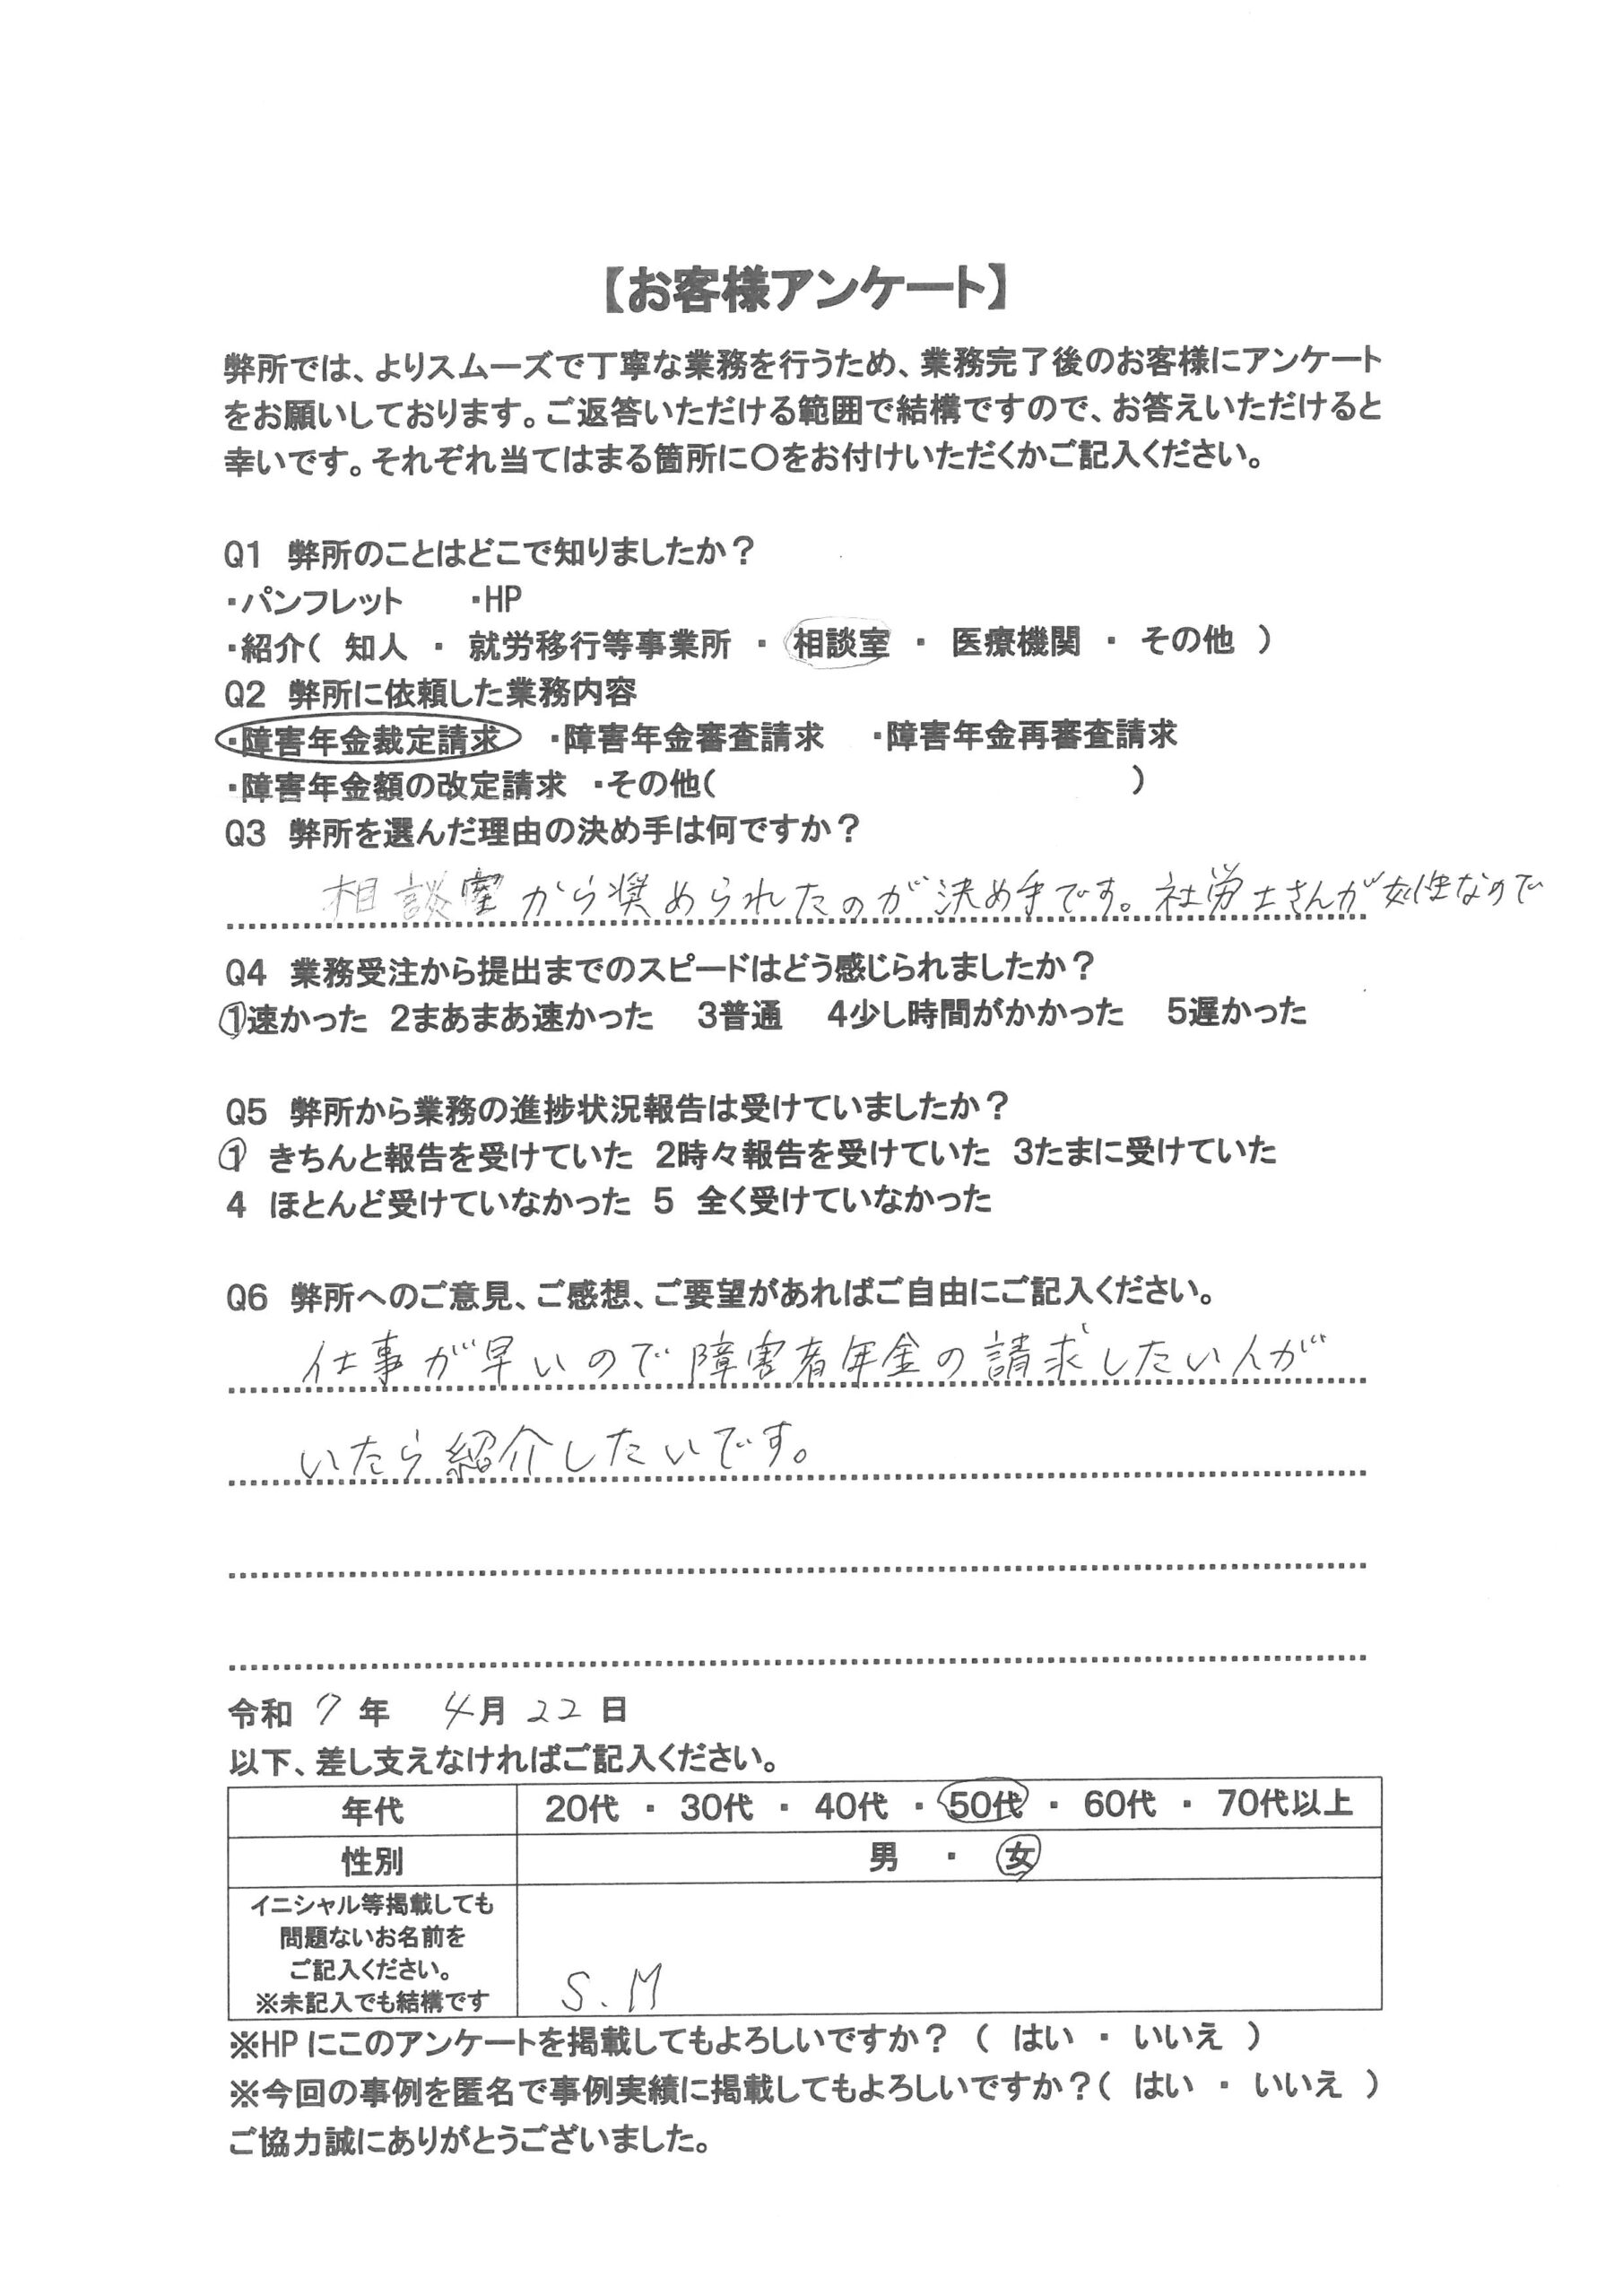 【お客様アンケート】
弊所では、よりスムーズで丁寧な業務を行うため、業務完了後のお客様にアンケート
をお願いしております。ご返答いただける範囲で結構ですので、お答えいただけると
幸いです。それぞれ当てはまる箇所に〇をお付けいただくかご記入ください。
Q1 弊所のことはどこで知りましたか？
・パンフレット ・HP
・紹介( 知人 ・ 就労移行等事業所 ・ 相談室 ・ 医療機関 ・ その他 )
Q2 弊所に依頼した業務内容
・障害年金裁定請求 ・障害年金審査請求 ・障害年金再審査請求
・障害年金額の改定請求 ・その他( )
Q3 弊所を選んだ理由の決め手は何ですか？
相談室から奨められたのが決め手です。社労士さんが女性なので
Q4 業務受注から提出までのスピードはどう感じられましたか？
1速かった 2まあまあ速かった 3普通 4少し時間がかかった 5遅かった
Q5 弊所から業務の進捗状況報告は受けていましたか？
1 きちんと報告を受けていた 2時々報告を受けていた 3たまに受けていた
4 ほとんど受けていなかった 5 全く受けていなかった
Q6 弊所へのご意見、ご感想、ご要望があればご自由にご記入ください。
仕事が早いので障害者年金の請求したい人が
いたら紹介したいです。
令和 7 年 4月 22 日
以下、差し支えなければご記入ください。
年代 20代 ・ 30代 ・ 40代 ・ 50代 ・ 60代 ・ 70代以上
性別 男 ・ 女
イニシャル等掲載しても
問題ないお名前を
ご記入ください。
※未記入でも結構です
S.M
※HPにこのアンケートを掲載してもよろしいですか？ ( はい ・ いいえ )
※今回の事例を匿名で事例実績に掲載してもよろしいですか？( はい ・ いいえ )
ご協力誠にありがとうございました。